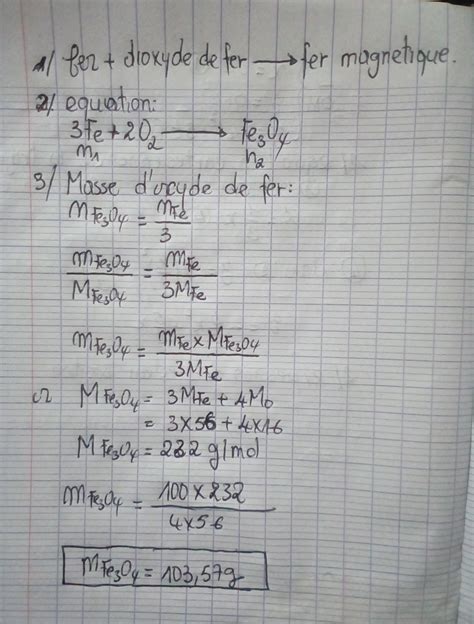 1/ fer + dioxyde de fer ⟶ fer magnetique.
2/ equation:
3Fe + 2O₂ ⟶ Fe₃O₄
n₁ n₂
3/ Masse d'oxyde de fer:
nFe₃O₄ = nFe/3
mFe₃O₄/MFe₃O₄ = mFe/3MFe
mFe₃O₄ = mFe x MFe₃O₄/3MFe
or MFe₃O₄ = 3MFe + 4MO
= 3x56 + 4x16
MFe₃O₄ = 232 g/mol
mFe₃O₄ = 100 x 232/4x56
mFe₃O₄ = 103,57g